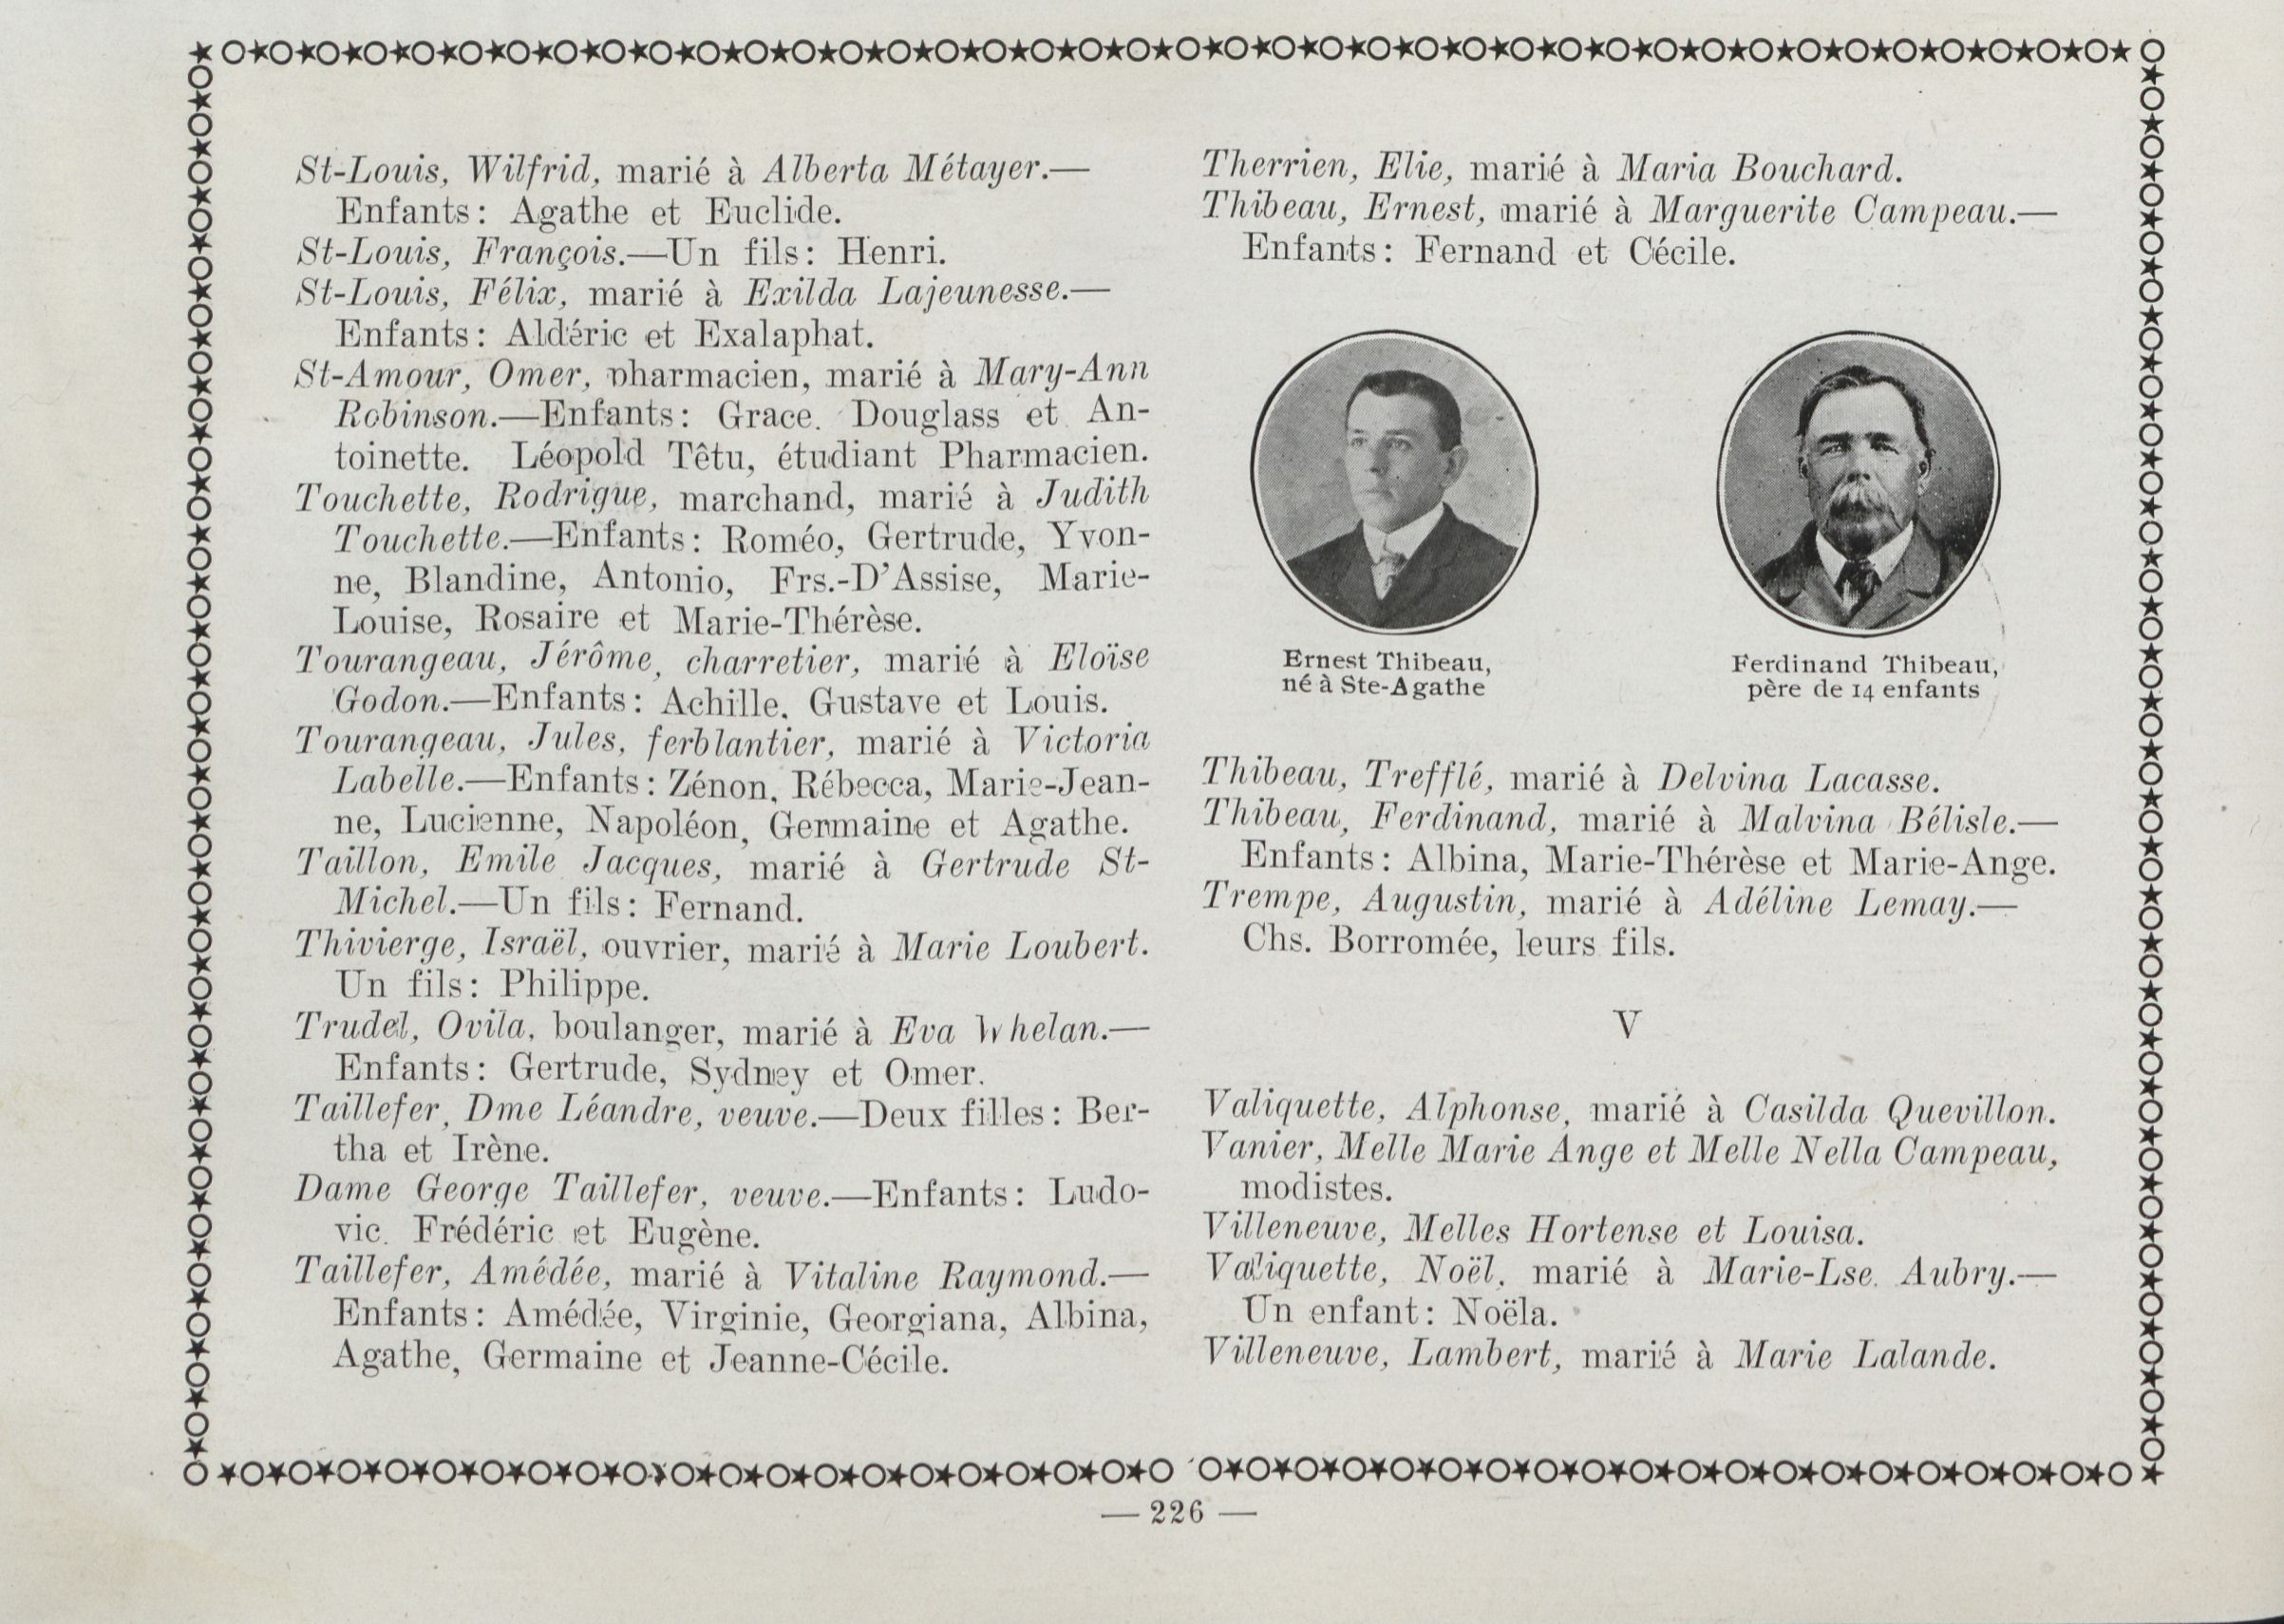 St-Louis, Wilfrid, marié à Alberta Métayer.—
Enfants: Agathe et Euclide.
St-Louis, François.—Un fils: Henri.
St-Louis, Félix, marié à Exilda Lajeunesse.—
Enfants: Aldéric et Exalaphat.
St-Amour, Omer, pharmacien, marié à Mary-Ann
Robinson.—Enfants: Grace. Douglass et An-
toinette. Léopold Têtu, étudiant Pharmacien.
Touchette, Rodrigue, marchand, marié à Judith
Touchette.—Enfants: Roméo, Gertrude, Yvon-
ne, Blandine, Antonio, Frs.-D'Assise, Marie-
Louise, Rosaire et Marie-Thérèse.
Tourangeau, Jérôme, charretier, marié à Eloïse
Godon.—Enfants: Achille, Gustave et Louis.
Tourangeau, Jules, ferblantier, marié à Victoria
Labelle.—Enfants: Zénon, Rébecca, Marie-Jean-
ne, Lucienne, Napoléon, Germaine et Agathe.
Taillon, Emile Jacques, marié à Gertrude St-
Michel.—Un fils: Fernand.
Thivierge, Israël, ouvrier, marié à Marie Loubert.
Un fils: Philippe.
Trudel, Ovila, boulanger, marié à Eva Whelan.—
Enfants: Gertrude, Sydney et Omer.
Taillefer, Dme Léandre, veuve.—Deux filles: Ber-
tha et Irène.
Dame George Taillefer, veuve.—Enfants: Ludo-
vic. Frédéric et Eugène.
Taillefer, Amédée, marié à Vitaline Raymond.—
Enfants: Amédée, Virginie, Georgiana, Albina,
Agathe, Germaine et Jeanne-Cécile.
Therrien, Elie, marié à Maria Bouchard.
Thibeau, Ernest, marié à Marguerite Campeau.—
Enfants: Fernand et Cécile.
Ernest Thibeau,
né à Ste-Agathe
Ferdinand Thibeau,
père de 14 enfants
Thibeau, Trefflé, marié à Delvina Lacasse.
Thibeau, Ferdinand, marié à Malvina Bélisle.—
Enfants: Albina, Marie-Thérèse et Marie-Ange.
Trempe, Augustin, marié à Adéline Lemay.—
Chs. Borromée, leurs fils.
V
Valiquette, Alphonse, marié à Casilda Quevillon.
Vanier, Melle Marie Ange et Melle Nella Campeau,
modistes.
Villeneuve, Melles Hortense et Louisa.
Valiquette, Noël, marié à Marie-Lse. Aubry.—
Un enfant: Noëla.
Villeneuve, Lambert, marié à Marie Lalande.
— 226 —